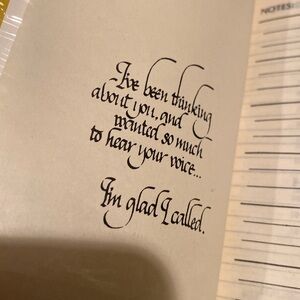 I've been thinking
about you, and
wanted so much
to hear your voice...
I'm glad I called.
NOTES: